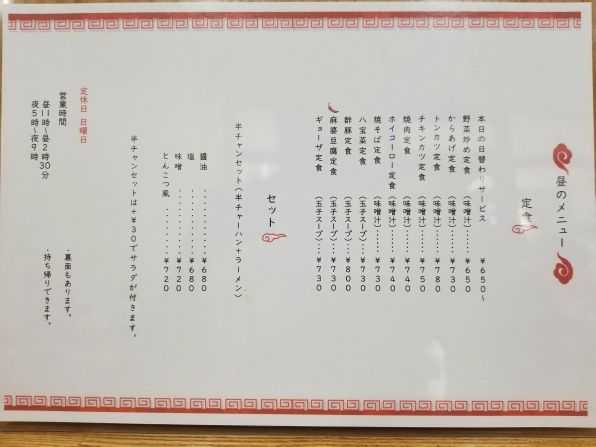 昼のメニュー
定食
本日の日替わりサービス ￥650～
野菜炒め定食 (味噌汁)‥‥￥650
からあげ定食 (味噌汁)‥‥￥730
トンカツ定食 (味噌汁)‥‥￥780
チキンカツ定食 (味噌汁)‥‥￥750
焼肉定食 (味噌汁)‥‥￥740
ホイコーロー定食 (味噌汁)‥‥￥740
焼そば定食 (味噌汁)‥‥￥730
八宝菜定食 (玉子スープ)‥‥￥730
酢豚定食 (玉子スープ)‥‥￥800
麻婆豆腐定食 (玉子スープ)‥‥￥730
ギョーザ定食 (玉子スープ)‥‥￥730
セット
半チャンセット(半チャーハン+ラーメン)
醤油 ‥‥‥‥‥ ￥680
塩 ‥‥‥‥‥ ￥680
味噌 ‥‥‥‥‥ ￥720
とんこつ風 ‥‥‥ ￥720
半チャンセットは+￥30でサラダが付きます。
定休日 日曜日
営業時間
昼11時～昼2時30分
夜5時～夜9時
・裏面もあります。
・持ち帰りできます。